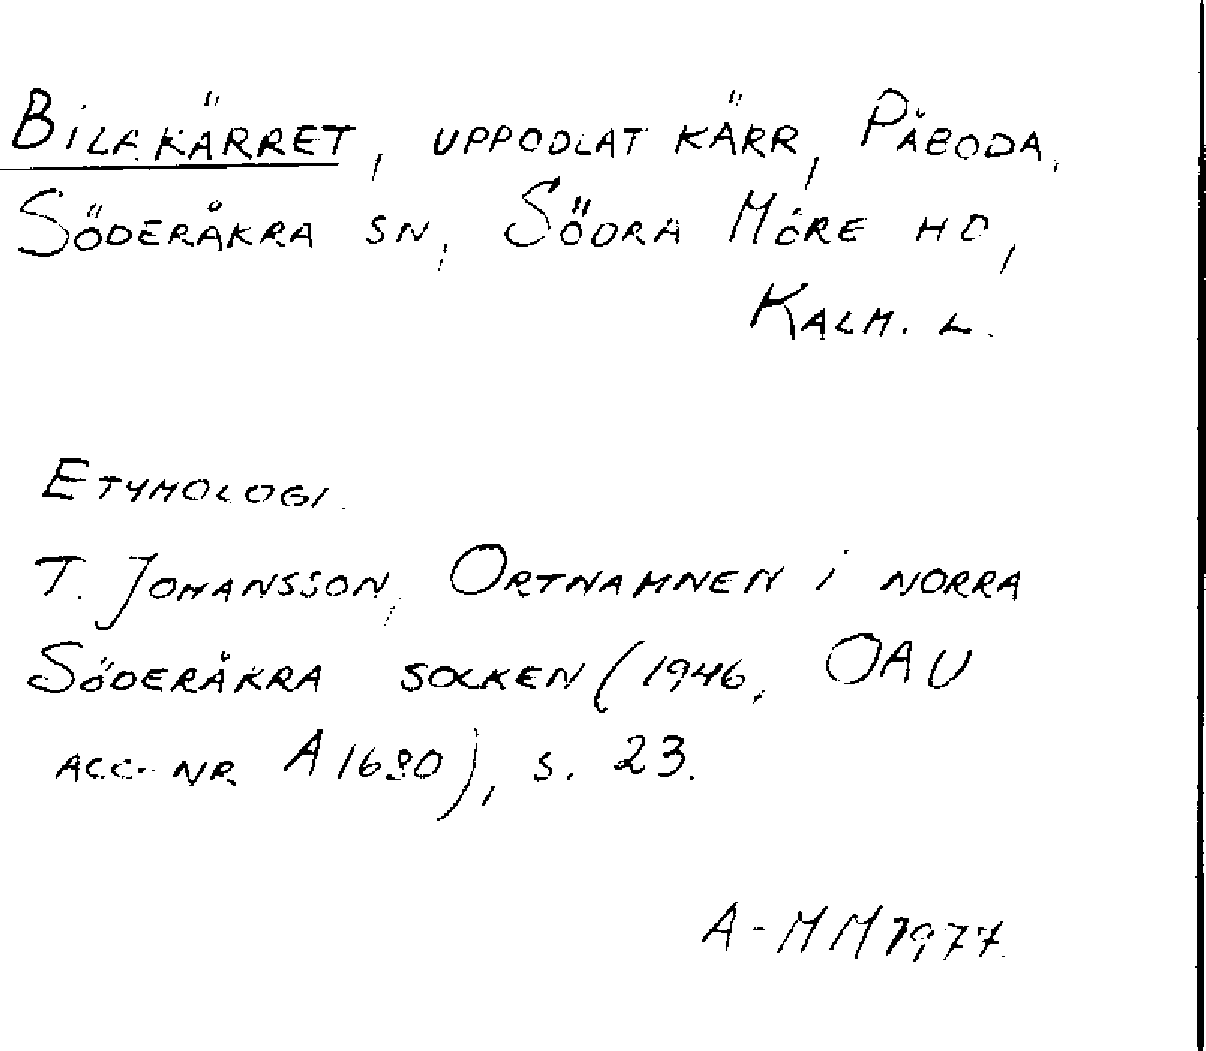 Bilakärret, uppodlat kärr, Påboda,
Söderåkra sn, Södra Möre hd,
Kalm. l.
Etymologi.
T. Johansson, Ortnamnen i norra
Söderåkra socken (1946, OAU
acc. nr A1680), s. 23.
A-MM 1977.